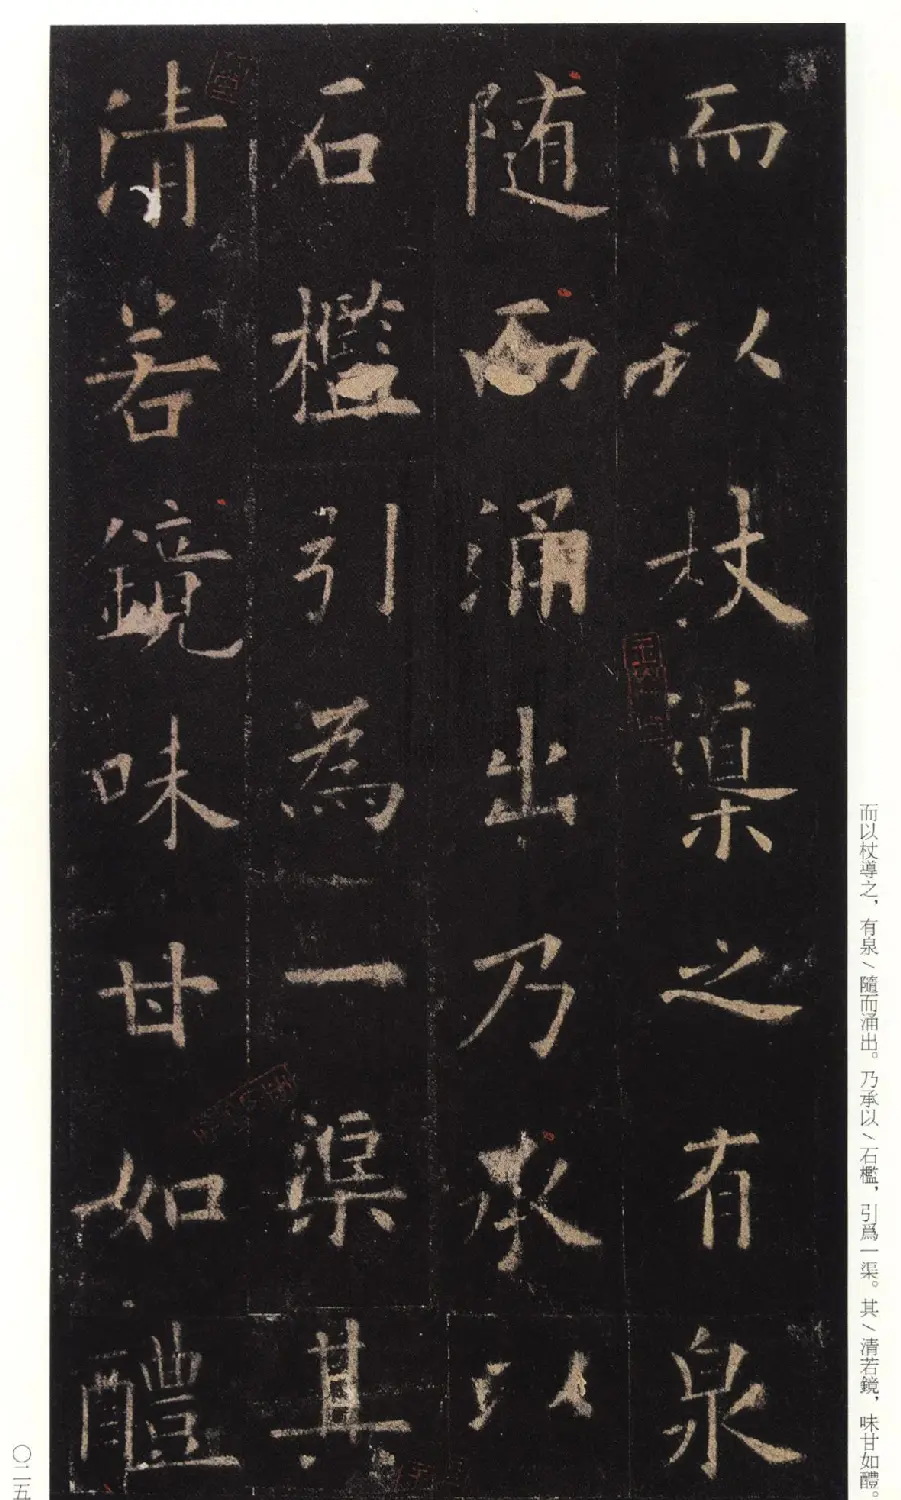 而以杖導之有泉
随而涌出乃承以
石檻引為一渠其
清若鏡味甘如醴
而以杖導之，有泉/隨而涌出。乃承以/石檻，引爲一渠。其/清若鏡，味甘如醴。
〇二五